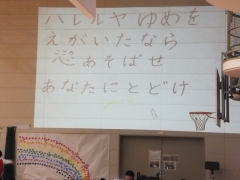 ハレルヤゆめを
えがいたなら
恋あそばせ
あなたにとどけ